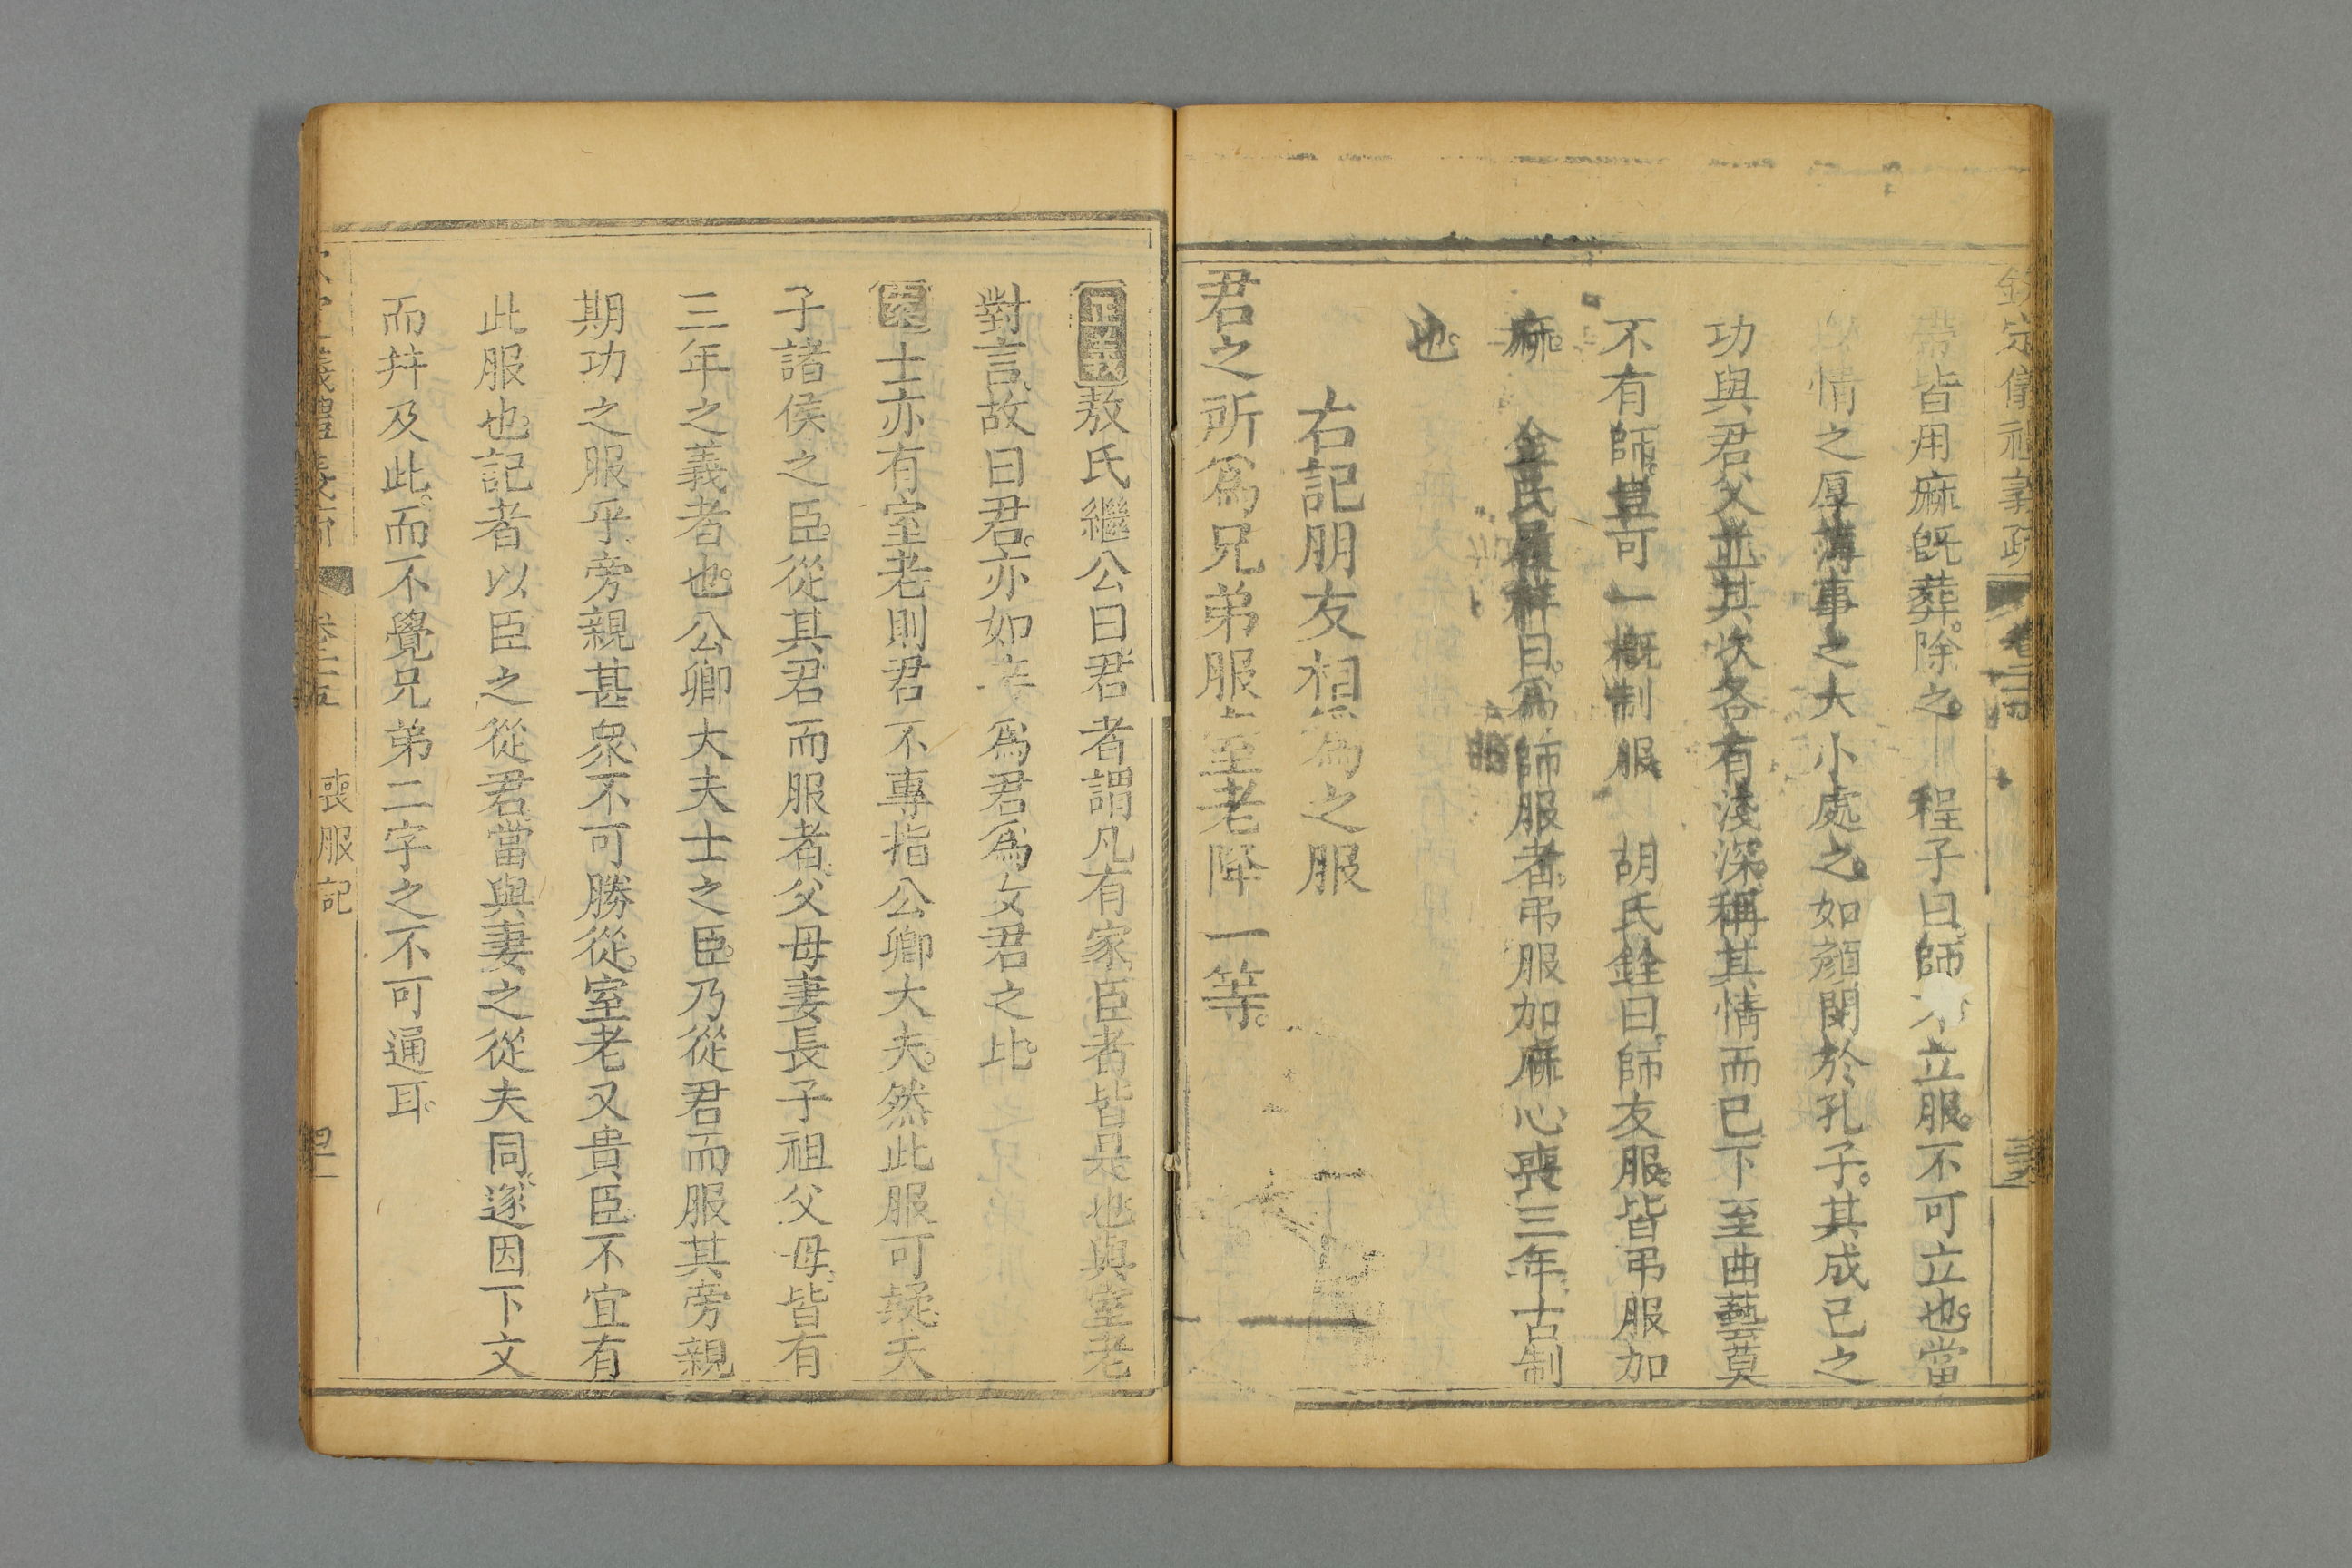 帶皆用麻旣葬除之 程子曰師不立服不可立也當
以情之厚薄事之大小處之如顏閔於孔子其成己之
功與君父並其次各有淺深稱其情而已下至曲藝莫
不有師豈可一概制服 胡氏銓曰師友服皆弔服加
麻 金氏履祥曰爲師服者弔服加麻心喪三年古制
也
右記朋友相爲之服
君之所爲兄弟服室老降一等
正義敖氏繼公曰君者謂凡有家臣者皆是也與室老
對言故曰君亦如妾爲君爲女君之比
案士亦有室老則君不專指公卿大夫然此服可疑天
子諸侯之臣從其君而服者父母妻長子祖父母皆有
三年之義者也公卿大夫士之臣乃從君而服其旁親
期功之服乎旁親甚衆不可勝從室老又貴臣不宜有
此服也記者以臣之從君當與妻之從夫同遂因下文
而幷及此而不覺兄弟二字之不可通耳
喪服記